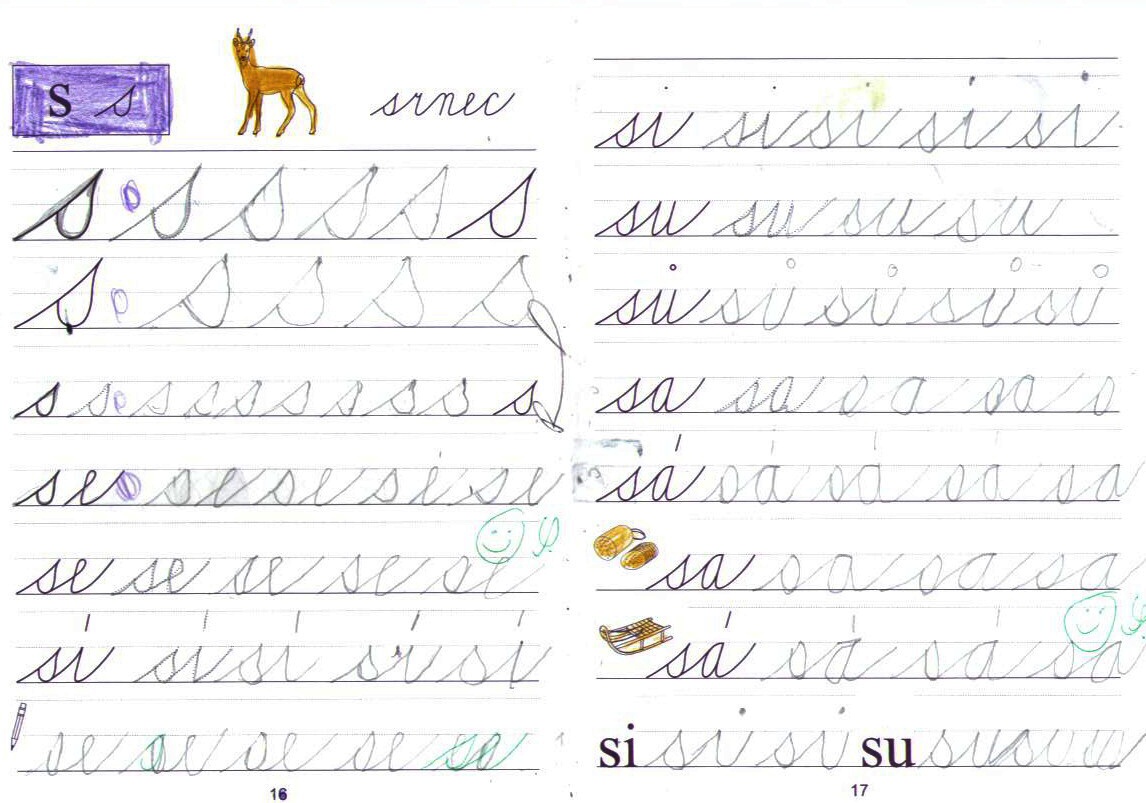 s s srnec
s s s s s s s
s s s s s s
s s s s s s s s s s
se se se se se
se se se se se
sí sí sí sí sí
se se se se se
16
si si si si si
su su su su
sů sů sů sů sů
sa sa sa sa s
sá sá sá sá sá
sa sa sa sa sa
sá sá sá sá
si si si su su su
17